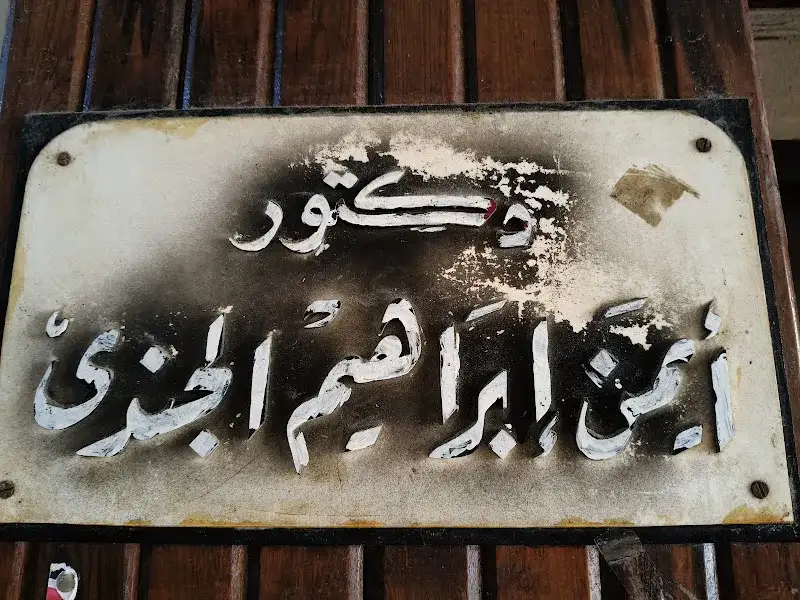 دكتور
أيمَن إبرَاهيمْ الجندىْ